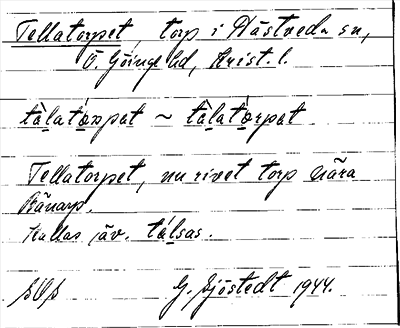 Tellatorpet, torp i Hästveda sn,
Ö. Göinge hd, Krist. l.
tàlatórpat ~ tàlatórpat
Tellatorpet, nu rivet torp nära
Ränarp.
Kallas äv. tálsas.
G. Sjöstedt 1944.